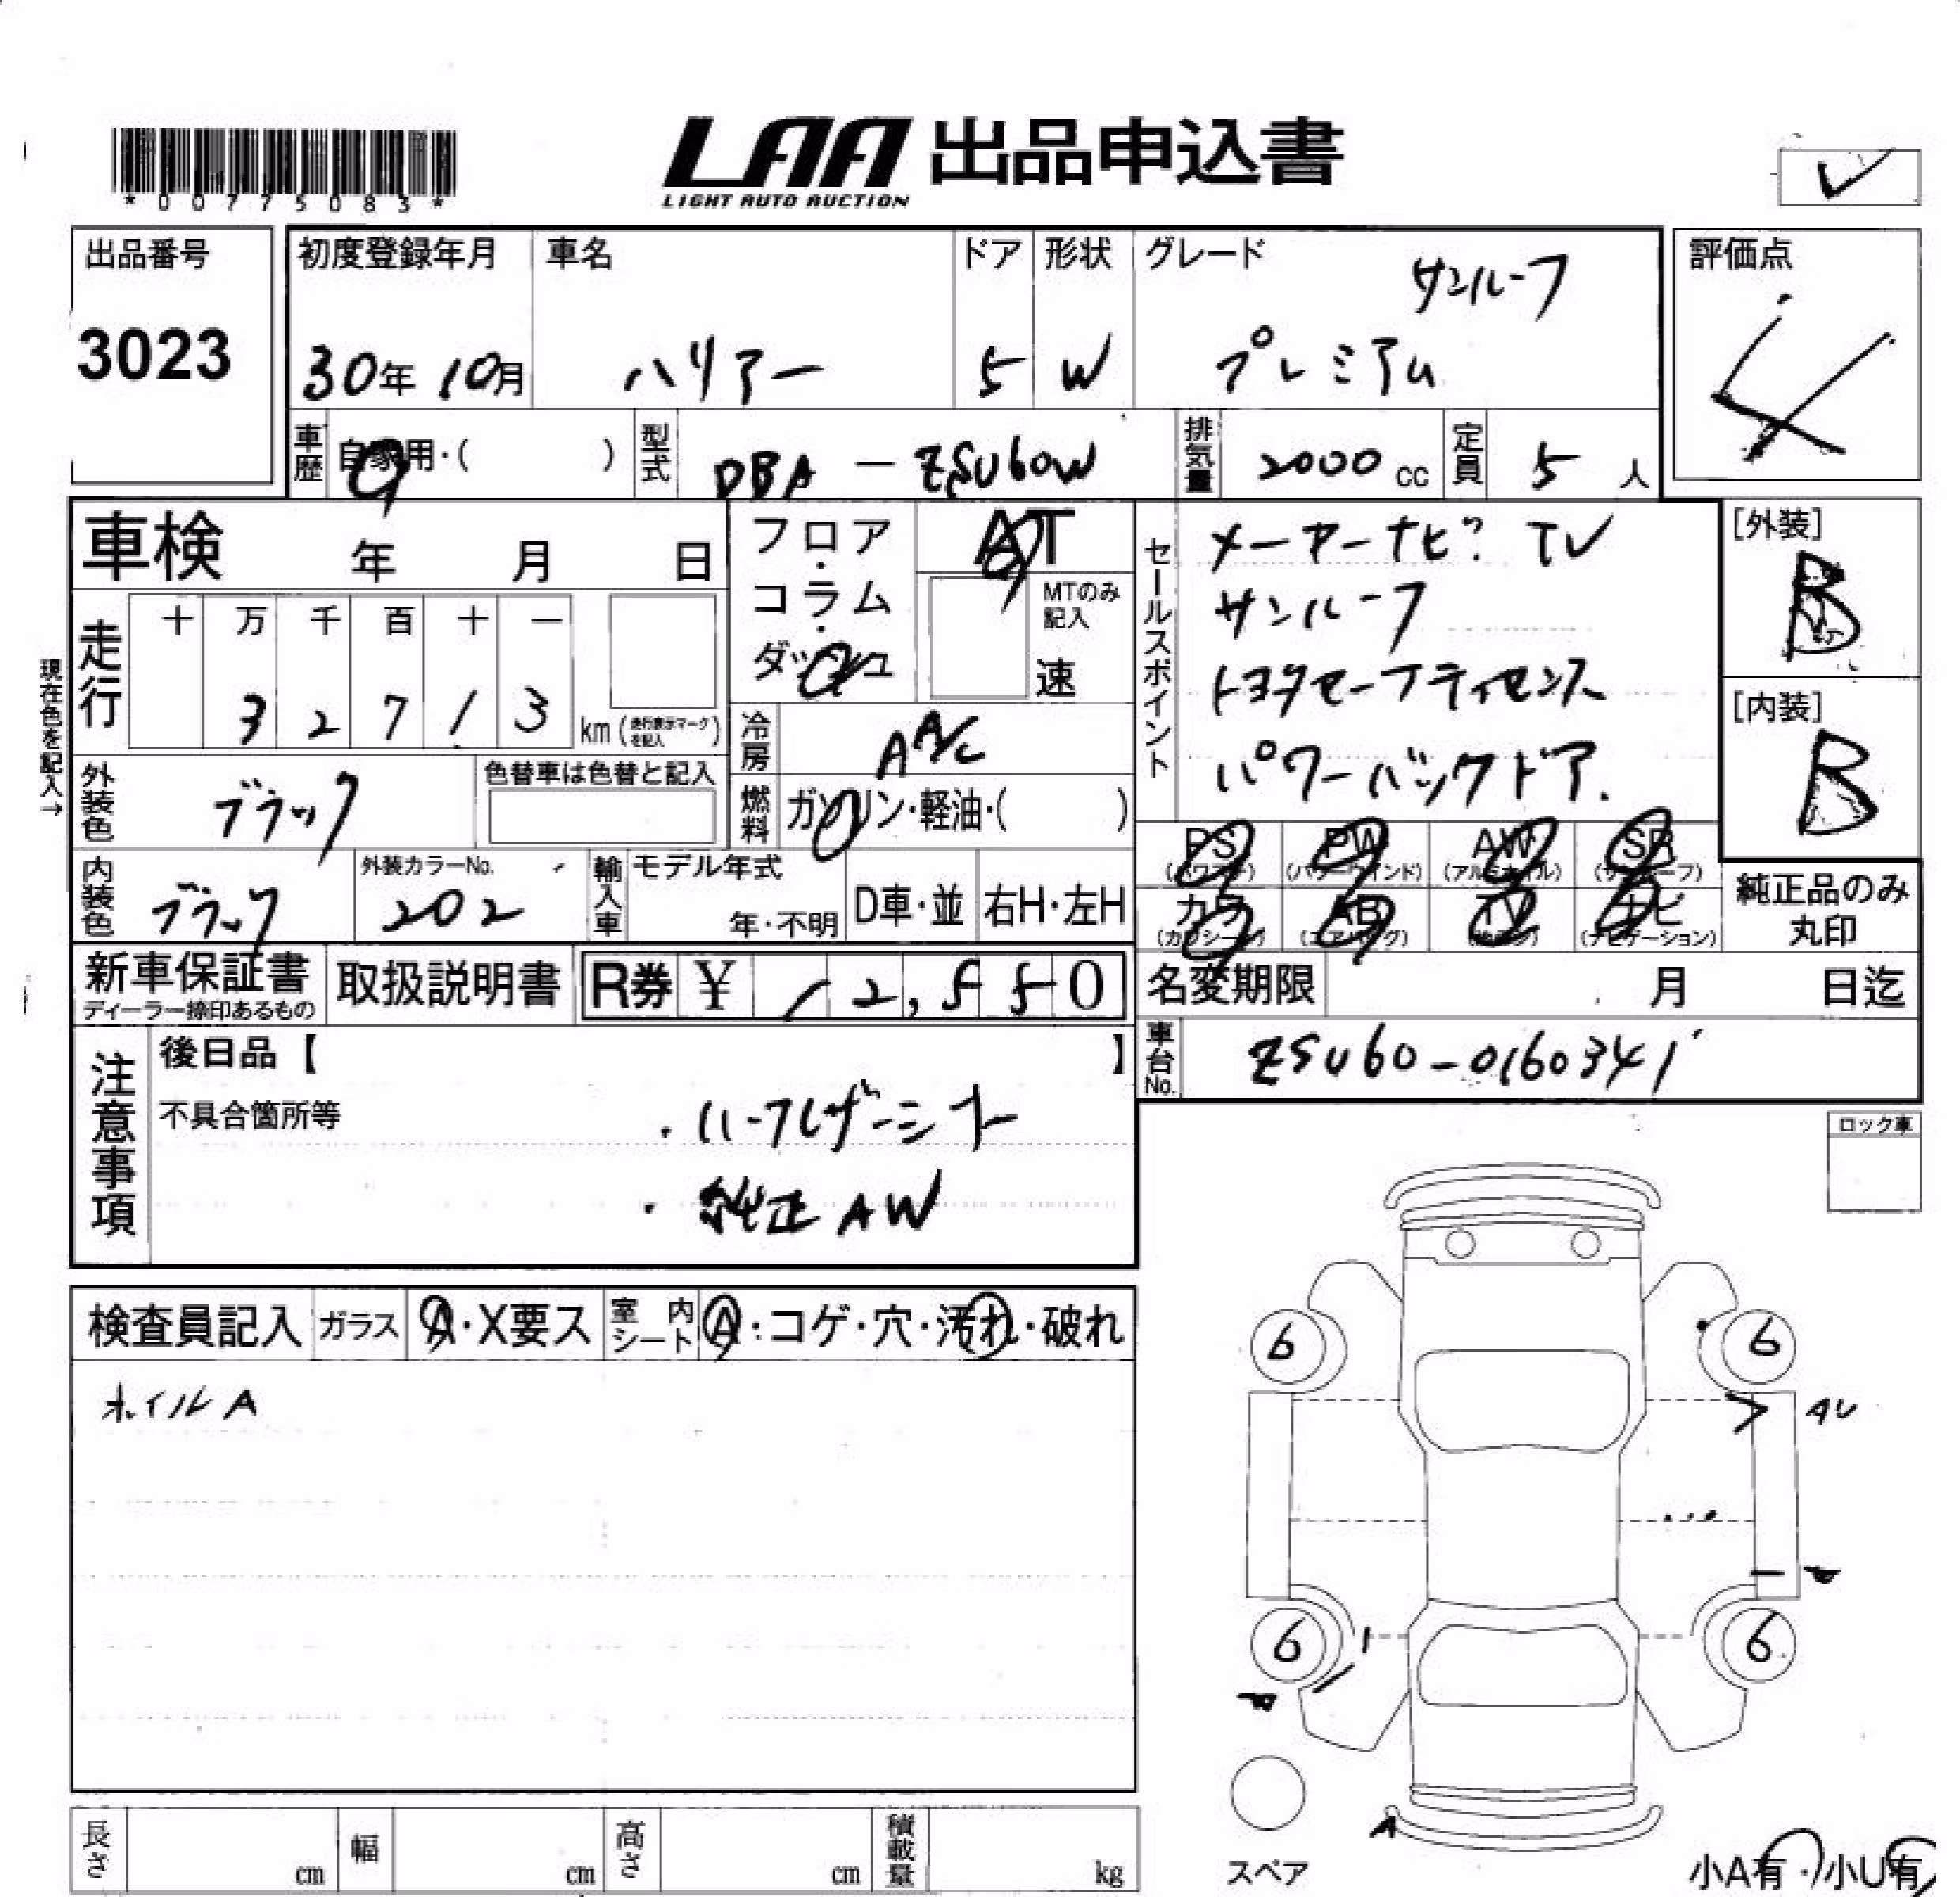 *00775083*
LAA 出品申込書
LIGHT AUTO AUCTION
出品番号
3023
初度登録年月
30年 10月
車名
ハリアー
ドア
5
形状
W
グレード
サンルーフ
プレミアム
評価点
4
車歴 自家用・( )
型式 DBA-ZSU60W
排気量 2000 cc
定員 5 人
車検 年 月 日
フロア・コラム・ダッシュ
AT
MTのみ記入
速
現在色を記入→
走行
十 万 千 百 十 一
3 2 7 1 3
km (走行表示マークを記入)
冷房 AA/C
燃料 ガソリン・軽油・( )
外装色 ブラック
色替車は色替と記入
内装色 ブラック
外装カラーNo.
202
輸入車
モデル年式
年・不明
D車・並
右H・左H
セールスポイント
メーカーナビ TV
サンルーフ
トヨタセーフティセンス
パワーバックドア.
[外装]
B
[内装]
B
PS (パワステ)
PW (パワーウインド)
AW (アルミホイル)
SR (サンルーフ)
カワ (カワシート)
AB (エアバッグ)
TV
ナビ (ナビゲーション)
純正品のみ
丸印
新車保証書
ディーラー捺印あるもの
取扱説明書
R券 ¥ 12,550
名変期限 月 日迄
車台No. ZSU60-0160341
注意事項
後日品【 】
不具合箇所等
・ハーフレザーシート
・純正AW
ロック車
検査員記入
ガラス A・X要ス
室内シート A・コゲ・穴・汚れ・破れ
ホイルA
6
6
AU
6
6
A
スペア
小A有・小U有
長さ cm
幅 cm
高さ cm
積載量 kg